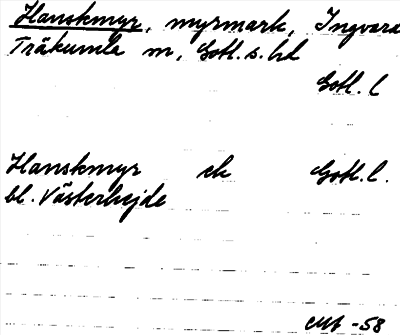 Hanskmyr, myrmark, Ingvards
Träkumla sn, Gotl.s. hd
Gotl. l
Hanskmyr ek Gotl. l.
bl. Västerhejde
-58